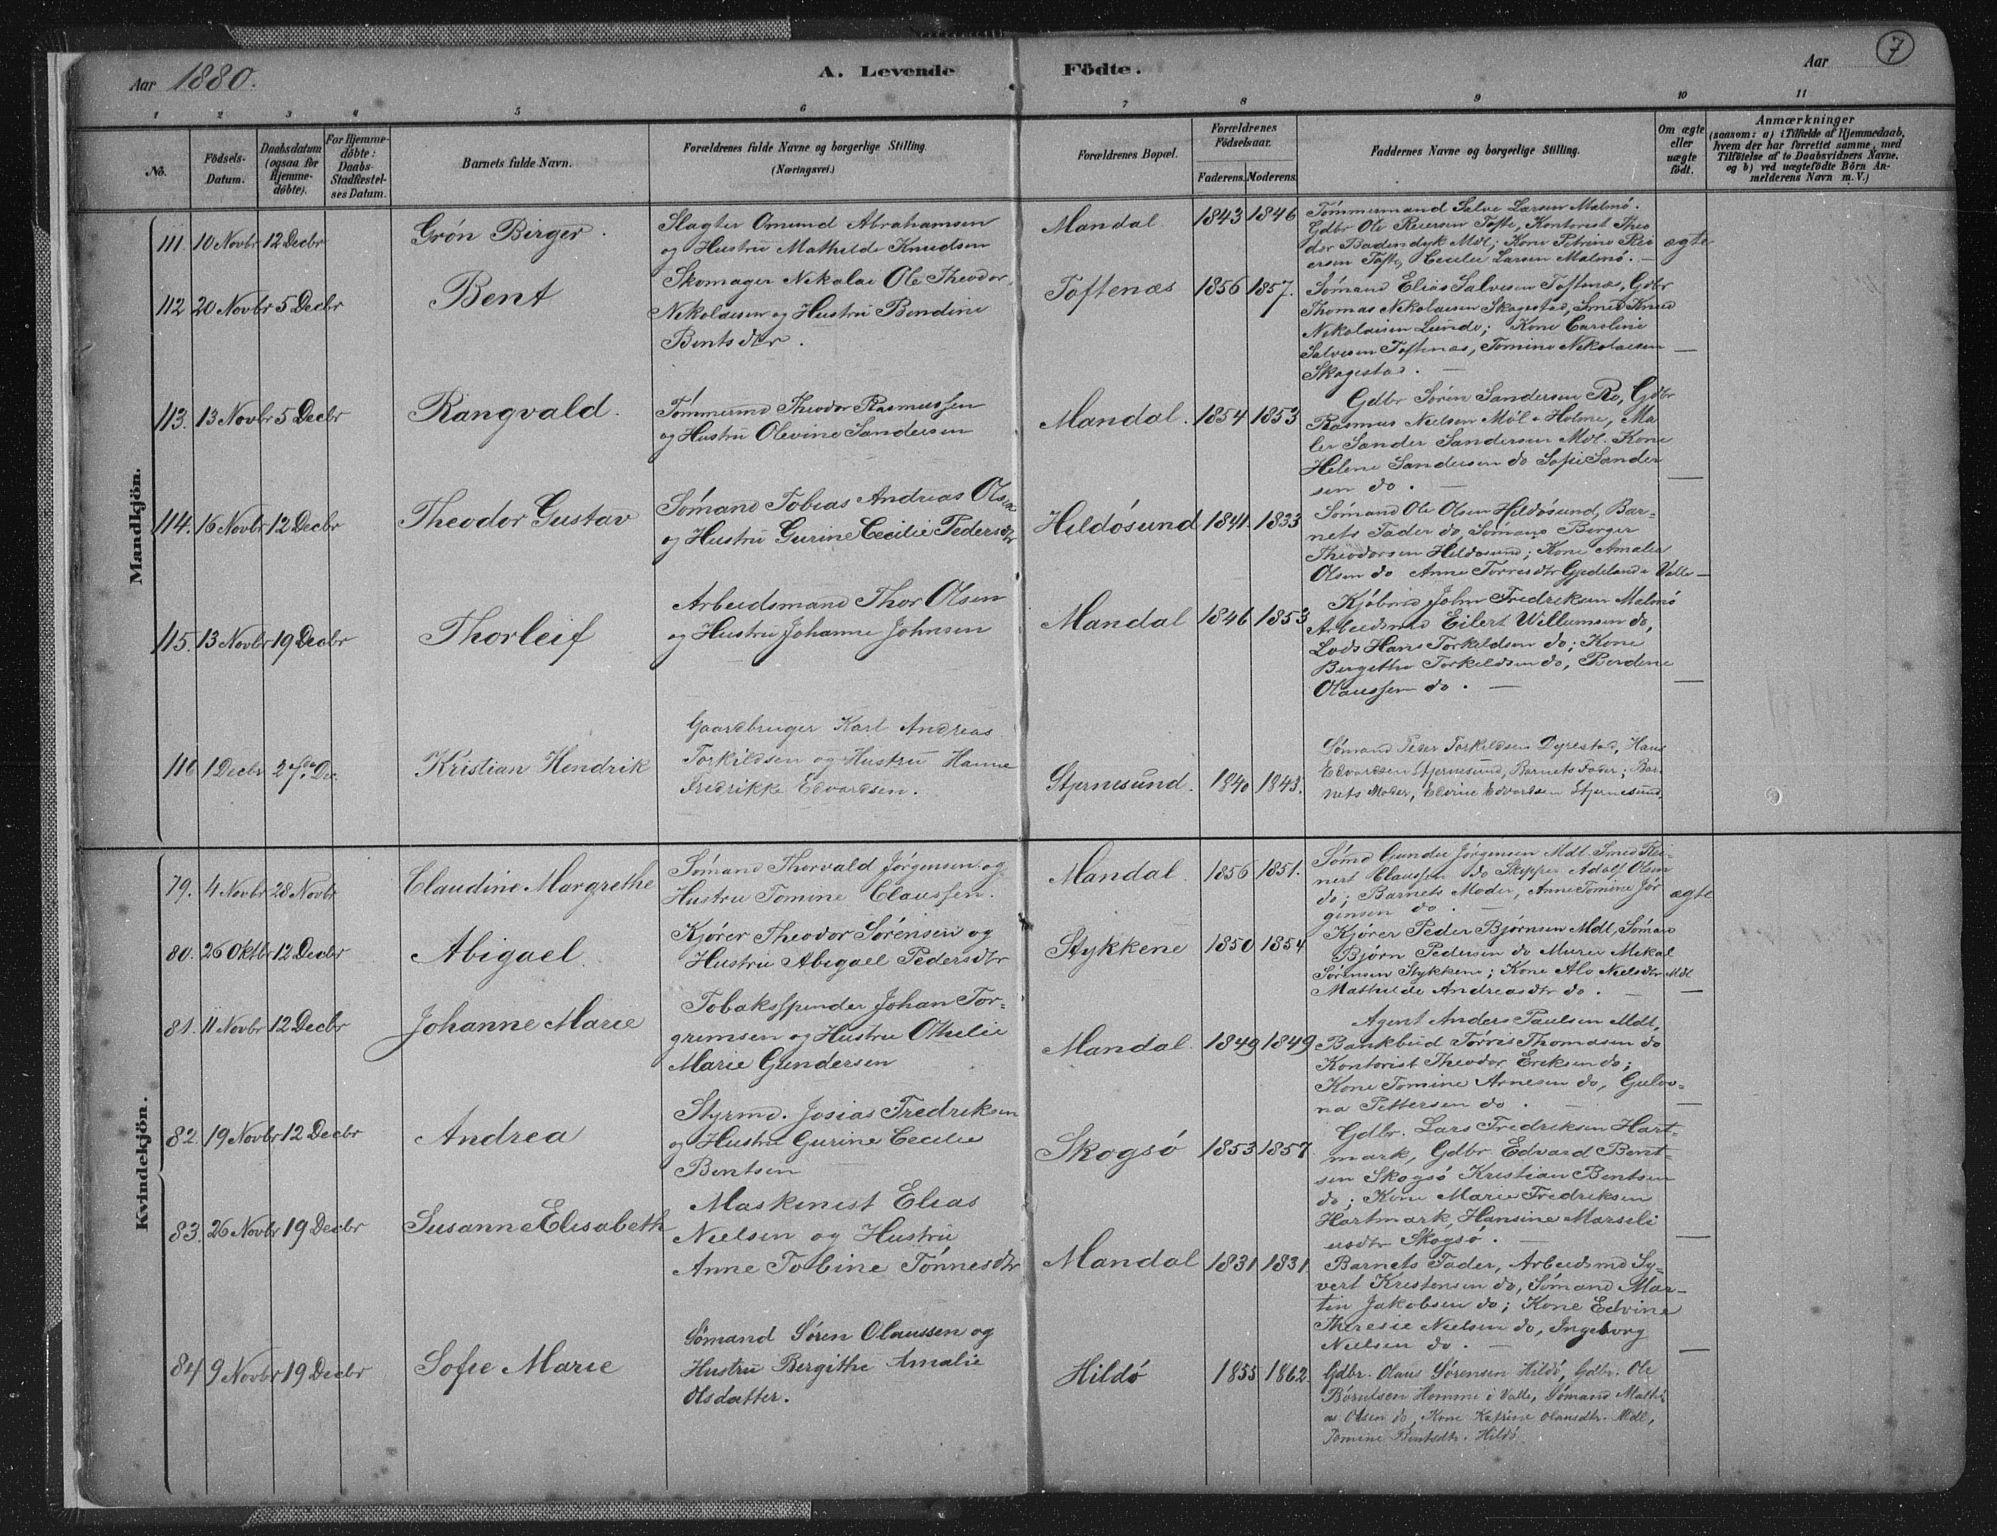 Aar 1880.
A. Levende Födte.
Aar
7
1 2 3 4 5 6 7 8 9 10 11
No.
Födsels-Datum.
Daabsdatum (ogsaa for Hjemme-döbte).
For Hjemme-döbte: Daabs-Stadfæstel-ses Datum.
Barnets fulde Navn.
Forældrenes fulde Navne og borgerlige Stilling.
(Næringsvei.)
Forældrenes Bopæl.
Forældrenes Födselsaar.
Faderens. Moderens.
Faddernes Navne og borgerlige Stilling.
Om ægte eller uægte födt.
Anmærkninger
(saasom: a) i Tilfælde af Hjemmedaab, hvem der har forrettet samme, med Tilföielse af to Daabsvidners Navne, og b) ved uægtefödte Börn An-melderens Navn m. V.)
Mandkjön.
111. 10 Novbr 12 Decbr Grón Birger.
Slagter Omund Abrahamsen
og Hustru Mathilde Knudsen
Mandal. 1843 1846
Tómmermand Salve Larsen Malmó.
Gdbr Ole Reiersen Tofte, Kontorist Theo
dor Badendyk Mdl; Kone Petrine Rei
ersen Tofte, Cecilie Larsen Malmó. —
ægte
112 20 Novbr 5 Decbr Bent
Skomager Nikolai Ole Theodor
Nikolaisen og Hustru Bendine
Bentsdtr.
Toftenæs 1856 1857.
Sómand Elias Salvesen Toftenæs, Gdbr
Thomas Nikolaisen Skagestad, Smed Knud
Nikolaisen Lunde; Kone Caroline
Salvesen Toftenæs, Tomine Nikolaisen
Skagestad. —
—
113. 13 Novbr 5 Decbr Rangvald.
Tómmermd Theodor Rasmussen
og Hustru Olevine Sandersen
Mandal. 1854 1853
Gdbr Sóren Sandersen Ro, Gdbr
Rasmus Nielsen Mdl i Holme, Ma
ler Sander Sandersen Mdl. Kone
Helene Sandersen do Sofie Sander
sen do. —
—
114. 16 Novbr 12 Decbr Theodor Gustav
Sómand Tobias Andreas Olsen
og Hustru Gurine Cecilie Pedersdtr
Hildósund 1841 1833
Sómand Ole Olsen Hildósund, Bar=
nets Fader do, Sómand Berger
Theodorsen Hildosund; Kone Amalie
Olsen do Anne Tórresdtr Gjedeland i Valle —
115. 13 Novbr 19 Decbr Thorleif
Arbeidsmand Thor Olsen
og Hustru Johanne Johnsen
Mandal 1846 1853
Kjóbmd John Fredriksen Malmó
Arbeidsmd Eilert Willumsen do,
Lods Hans Torkildsen do; Kone
Bergithe Torkildsen do, Berdene
Olaussen do. —
—
116 1 Decbr Kristian Hendrik
Gaardbruger Karl Andreas
Torkildsen og Hustru Hanne
Fredrikke Edvardsen.
Stjernesund. 1840 1843.
Sómand Peder Torkildsen Dyrestad, Hans
Edvardsen Stjernesund, Barnets Fader; Bar-
nets Moder, Elvine Edvardsen Stjernesund.
Kvindekjön.
79. 4 Novbr 28 Novbr Claudine Margrethe
Sómand Thorvald Jórgensen og
Hustru Tomine Claussen.
Mandal. 1856 1851.
Sómd Gunder Jórgensen Mdl. Smed Rei-
nert Claussen do Skipper Adolf Olsen
do; Barnets Moder, Anne Tomine Jór
gensen do. —
ægte
80. 26 Oktbr 12 Decbr Abigael.
Kjórer Theodor Sórensen og
Hustru Abigael Pedersdtr
Stykkene 1850 1854
Kjórer Peder Bjórnsen Mdl, Sómand
Bjórn Pedersen do Murer Mekal
Sórensen Stykkene; Kone Alo Nielsdtr Mdl
Mathilde Andreasdtr do. — —
81. 11 Novbr 12 Decbr Johanne Marie
Tobaksspinder Johan Tor-
grimsen og Hustru Othelie
Marie Gundersen
Mandal. 1849 1849
Agent Anders Paulsen Mdl,
Bankbud Tórris Thomasen do
Kontorist Theodor Eriksen do;
Kone Tomine Arnesen do, Gulov-
na Pettersen do. —
—
82. 19 Novbr 12 Decbr Andrea
Styrmd. Josias Fredriksen
og Hustru Gurine Cecilie
Bentsen
Skogsó 1853 1857
Gdbr. Lars Fredriksen Hart-
mark, Gdbr Edvard Bent-
sen Skogsó Kristian Bentsen
do; Kone Marie Fredriksen
Hartmark, Hansine Marseli
usdtr Skogsó. —
—
83. 26 Novbr 19 Decbr Susanne Elisabeth
Maskinist Elias
Nielsen og Hustru
Anne Tobine Tónnesdtr
Mandal 1831 1831
Barnets Fader, Arbeidsmd Sy-
vert Kristensen do, Sómand Mar-
tin Jakobsen do; Kone Edvine
Theresie Nielsen do, Ingeborg
Nielsen do. —
—
84 9 Novbr 19 Decbr Sofie Marie
Sómand Sóren Olaussen og
Hustru Bergithe Amalie
Olsdatter.
Hildó 1855 1862.
Gdbr. Olaus Sórensen Hildó, Gdbr. Ole
Bórulsen Homme i Valle, Sómand Mathi
as Olsen do, Kone Katrine Olausdtr. Mdl,
Tomine Bentsdtr. Hildó